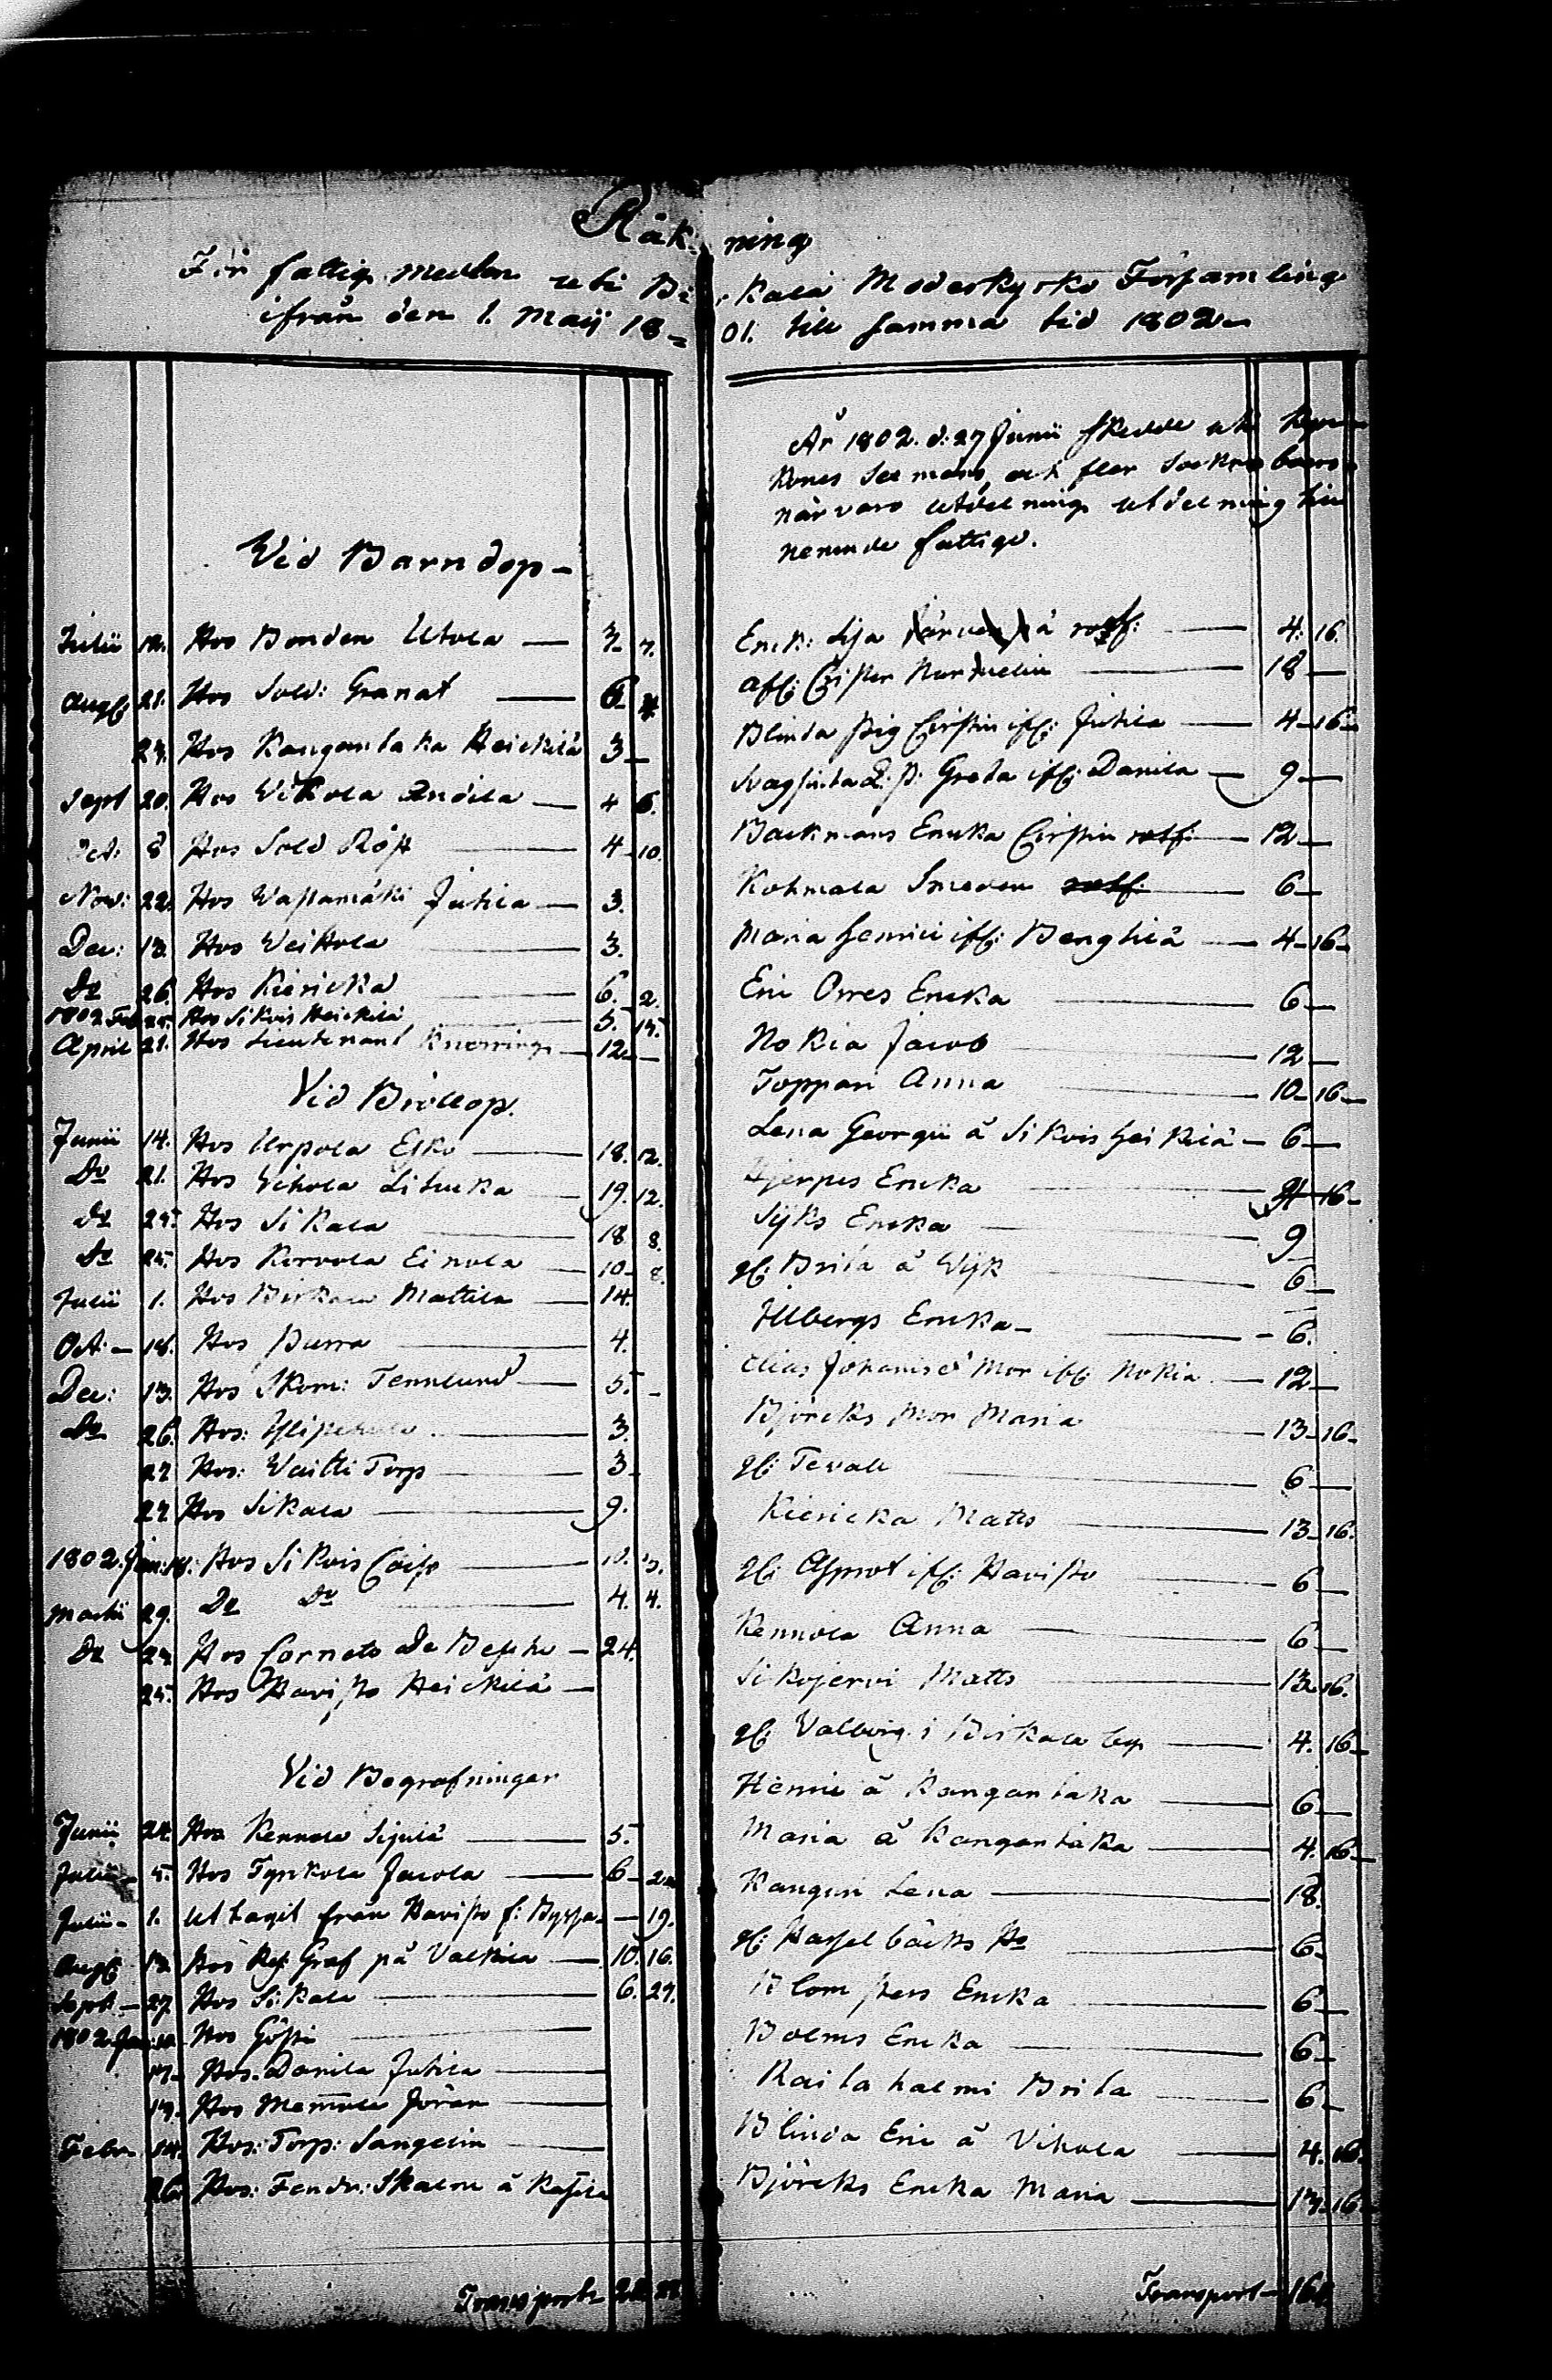 Räkning
För fattig medlen uti Birkala Moderkyrko Församling
ifrån den 1. Maij 1801. till samma tid 1802
Vid Barndop
Julii 12. Hos Bonden Utola 3 7.
Augs: 21. Hos Sold: Granat 6
24. Hos Kangantaka Heickilä 3
Sept 20. Hos Wihola Andila 4 6.
Oct: 8 Hos Sold Röst 4 10.
Nov: 22. Hos Juhila 3.
Dec: 13. Hos Weihola 3.
Do 26. Hos Kiericka 6. 2.
1802 Feb 25. Hos Sikvis Heickilä 5. 15.
April 21. Hos Lieutenant Knorring 12
Vid Bröllop.
Junii 14. Hos Urpola Esko 18. 12.
Do 21. Hos Wihola Lituka 19. 12.
Do 25. Hos Sikala 18 8.
Do 25. Hos Korvola Einola 10 8.
Julii 1. Hos Birkala Mattila 14.
Oct. 18. Hos Purra 4.
Dec: 13. Hos Skom: Tennlund 5.
Do 26. Hos: 3.
27 Hos: Waitti Torp 3
27. Hos Sikala 9.
1802. Jan: 18: Hos Sikvis 10. 3.
Martii 29. Do Do 4. 4.
Do 24. Hos Cornets De Besche 24.
25. Hos Havisto Heickilä
Vid Begrafningar
Junii 24. Hos Kennola Sipilä 5.
Julii 5. Hos Tyrkola Jacola 6 2
Julii 1. Uttagit från Havisto f: 19.
Augs: 12. Hos Graf på Valkila 10. 16.
Sept 27 Hos Sikala 6. 24.
1802 Jan: Hos Gösti
17. Hos. Danila Juhila
17. Hos Mennola Jöran
Febr. 14. Hos: Torp: Sangelin
26. Hos: Fendr: Skalm å
Transport
År 1802. d: 27 Junii skedde uti
närvaro utdelning utdelning till
fattige.
Erick: Lisa å rotf: 4. 16.
18
Blinda pig Cirstin ifr: Juhila 4 16
Greta ifr: Danila 9
Backmans Encka Cirstin rotf: 12
Kohmala Smeden rotf: 6
Maria Henrici ifr: Benghilä 4 16
Eric Orres Encka 6
Nokia Jacob 12
Toppari Anna 10 16
Lena Georgii å Sikvis Heickilä 6
Hjerpes Encka 4 16
Sijks Encka 9
gl: Brita å Wijk 6
Illbergs Encka 6.
Elias Johanis:s Mor ifr: Nokia 12
Björcks Mor Maria 13 16
gl: Tevall 6
Kiericka Matts 13 16.
gl: ifr: Havisto 6
Kennola Anna 6
Sikojervi Matts 13 16.
gl: Valborg i Birkala by 4. 16
Henric å Kangantaka 6
Maria å Kangantaka 4. 16
Kangari Lena 18.
gl: Hasselbäcks Ho 6
Blomsters Encka 6
Bolms Encka 6
Raitahalmi Brita 6
Blinda Eric å Vihola 4. 16.
Björcks Encka Maria 13 16
Transport